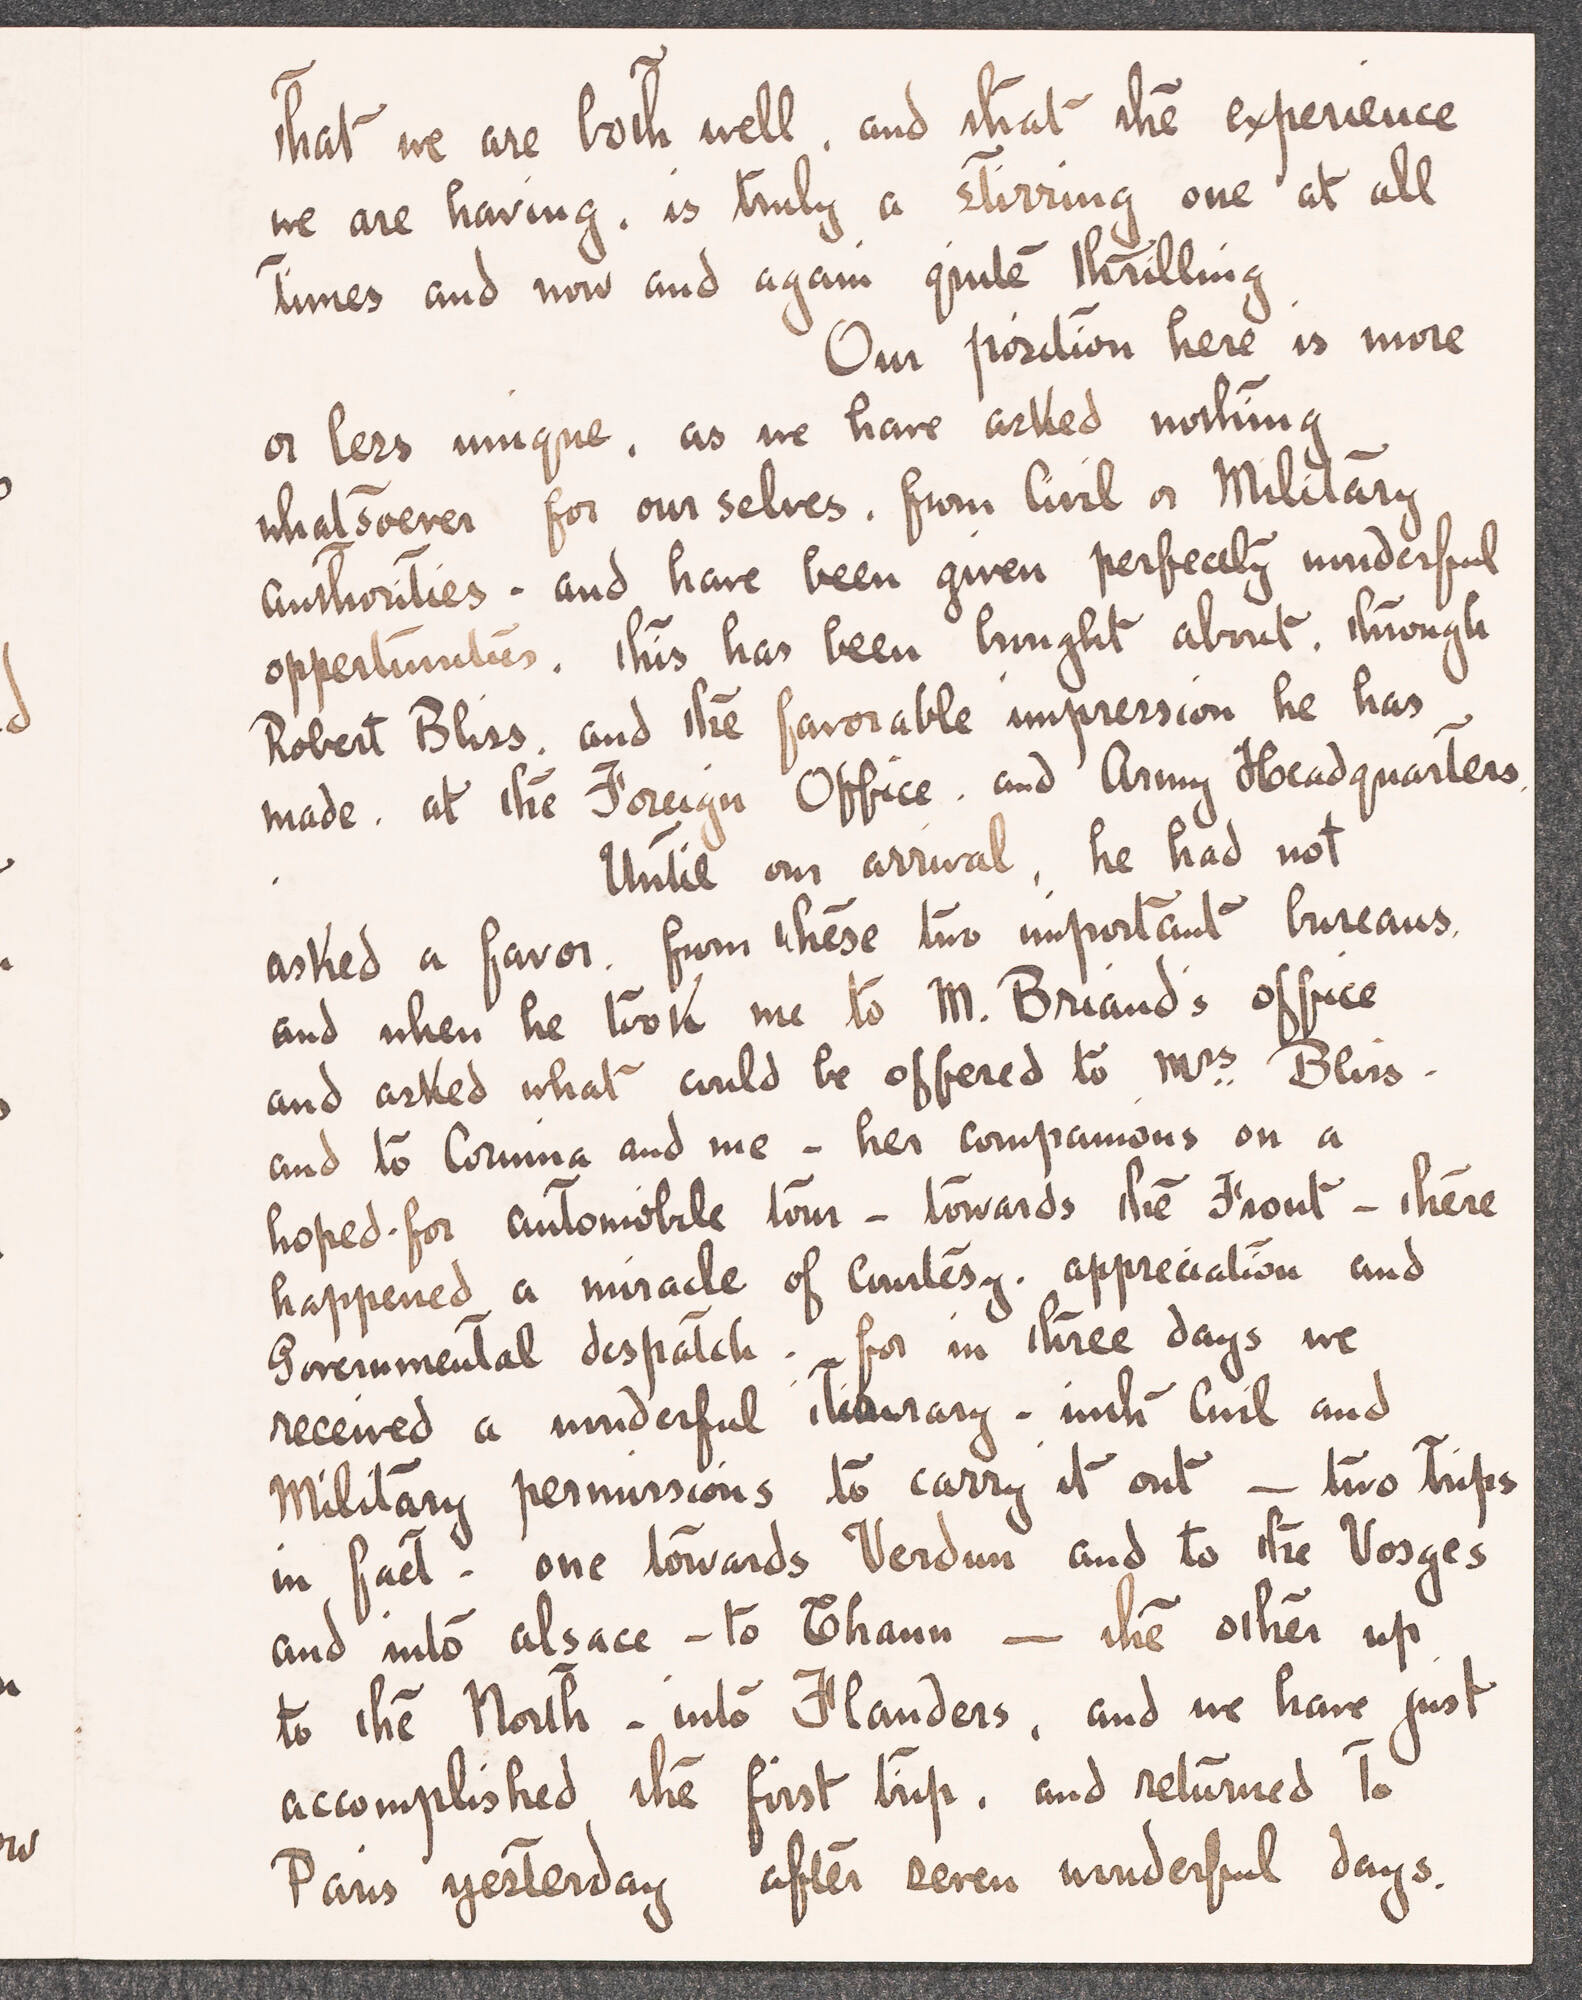 that we are both well, and that the experience
we are having, is truly a stirring one at all
times and now and again quite thrilling
Our position here is more
or less unique, as we have asked nothing
whatsoever for our selves, from Civil or Military
authorities - and have been given perfectly wonderful
oppertunities. This has been brought about, through
Robert Bliss, and the favorable impression he has
made, at the Foreign Office, and Army Headquarters.
Until our arrival, he had not
asked a favor, from these two important bureaus,
and when he took me to M. Briand's office
and asked what could be offered to Mrs. Bliss -
and to Corinna and me - her companions on a
hoped-for automobile tour - towards the Front - there
happened a miracle of Courtesy, appreciation and
Governmental despatch - for in three days we
received a wonderful itinerary - with Civil and
Military permissions to carry it out — two trips
in fact - one towards Verdun and to the Vosges
and into alsace - to Thann — the other up
to the North - into Flanders, and we have just
accomplished the first trip, and returned to
Paris yesterday after seven wonderful days.